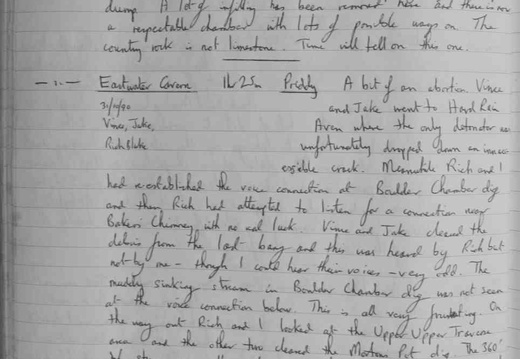 dump. A lot of infilling has been removed here and there is now
a respectable chamber with lots of possible ways on. The
country rock is not limestone. Time will tell on this one.
— 2. — Eastwater Cavern 1h 25m Priddy A bit of an abortion. Vince
31/10/90 and Jake went to Hard Rain
Vince, Jake, Aven where the only detonator was
Rich Blake unfortunately dropped down an inacc-
essible crack. Meanwhile Rich and I
had re-established the voice connection at Boulder Chamber dig
and then Rich had attempted to listen for a connection near
Bakers Chimney with no real luck. Vince and Jake cleared the
debris from the last bang and this was heard by Rich but
not by me - though I could hear their voices - very odd. The
muddy sinking stream in Boulder Chamber dig was not seen
at the voice connection below. This is all very frustrating. On
the way out Rich and I looked at the Upper Upper Traverse
area and the other two cleared the Mortons Pot dig. The 360'